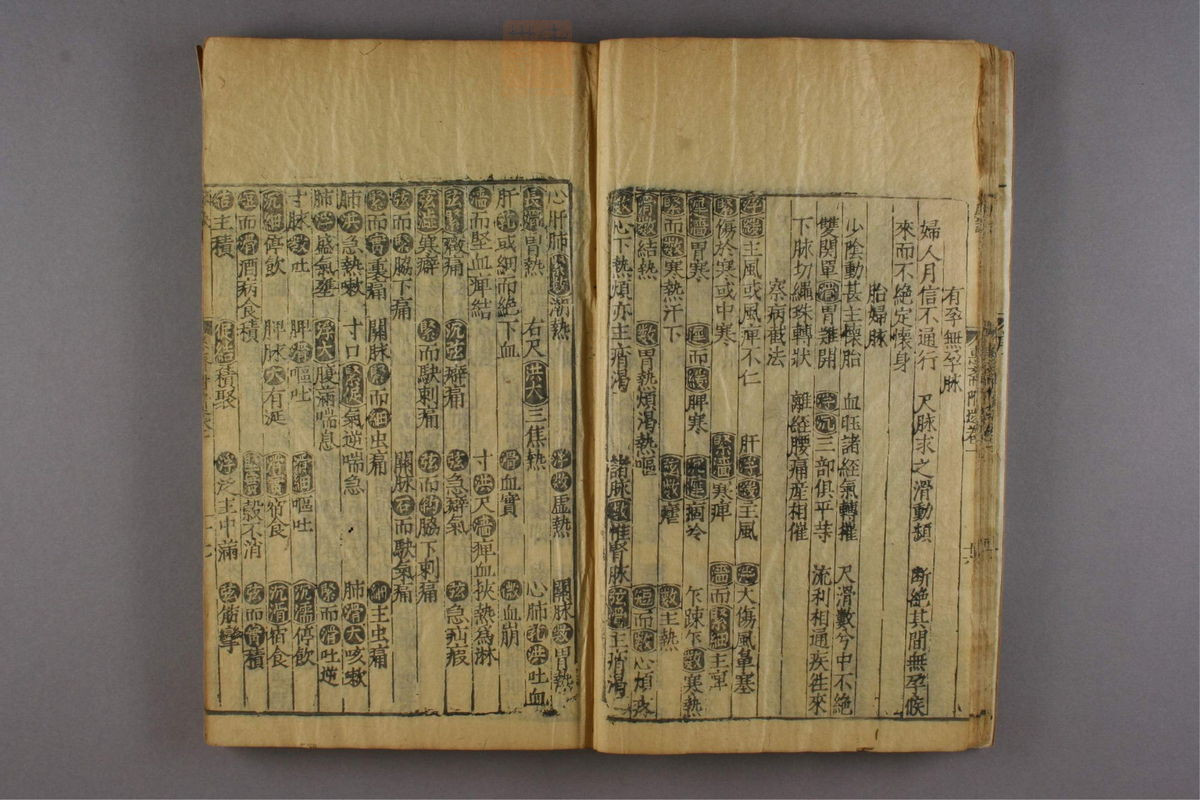 有孕無孕脉
婦人月信不通行 尺脉求之滑動頻 断絶其間無孕候
來而不絶定懐身
胎婦脉
少陰動甚主懆胎 血旺諸経氣轉摧 尺滑數兮中不絶
雙関單滑胃難開 浮沉三部俱平等 流利相通疾徃來
下脉切縄珠轉狀 離経腰痛産相催
察病截法
浮緩主風或風痺不仁 肝浮緩主風 大傷風鼻塞
緊傷於寒或中寒 緊濇寒痺 濇而緊細主痺
遲濇胃寒 遲而緩脾寒 痼冷 乍踈乍數寒熱
緊而數寒熱汗下 弦數瘧 數主熱
滑數結熱 數胃熱煩渴熱嘔 而數心煩疼
數心下熱煩亦主痟渴 諸脉數惟腎脉弦滑主痟渴
心肝肺潮熱 浮數虛熱 関脉數胃熱
長濡胃熱 右尺洪大三焦熱 心肺芤洪吐血
肝芤或細而絶下血 滑血實 微血崩
濇而堅血痺結 寸洪尺濇痺血挾熱為淋
弦緊癥痛 沉弦癖痛 弦急癖氣 弦急疝瘕
弦虛寒癖 緊而駃刺痛 弦而鈎脇下刺痛
弦而緊脇下痛 関脉石而駃氣痛
緊而實裏痛 関脉緊而細虫痛 細主虫痛
肺洪急熱嗽 寸口緊促氣逆喘急 肺滑大咳嗽
肺浮盛氣壅 浮大腹滿喘息 緊而滑吐逆
寸脉數吐 脾滑嘔吐 滑細嘔吐 沉濡停飲
沉細停飲 脾脉大有涎 滑實宿食 沉滑宿食
遲而滑酒病食積 穀不消 弦而實積
結主積 伏結積聚 浮泛主中滿 弦傷攣